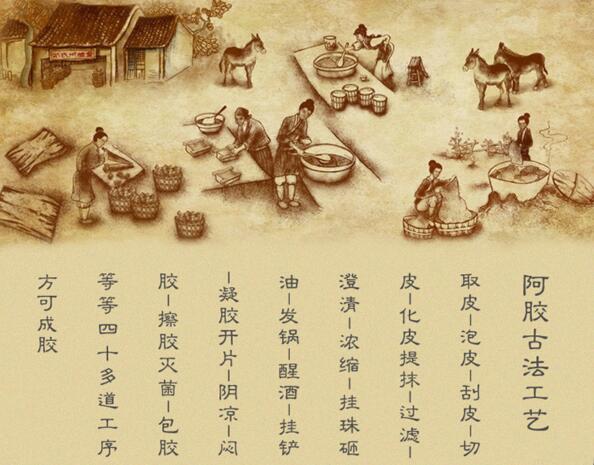 阿胶古法工艺
取皮–泡皮–刮皮–切
皮–化皮提抹–过滤–
澄清–浓缩–挂珠砸
油–发锅–醒酒–挂铲
–凝胶开片–阴凉–闷
胶–擦胶灭菌–包胶
等等四十多道工序
方可成胶